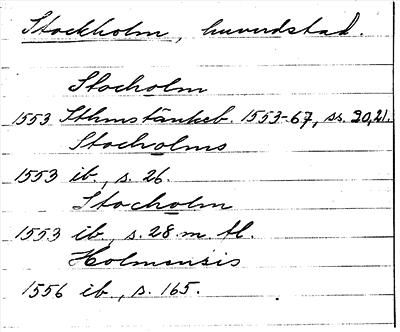 Stockholm, huvudstad.
Stocholm
1553 Sthmstänkeb. 1553-67, ss. 20, 21.
Stocholms
1553 ib., s. 26.
Stocholm
1553 ib., s. 28 m. fl.
Holmensis
1556 ib., s. 165.